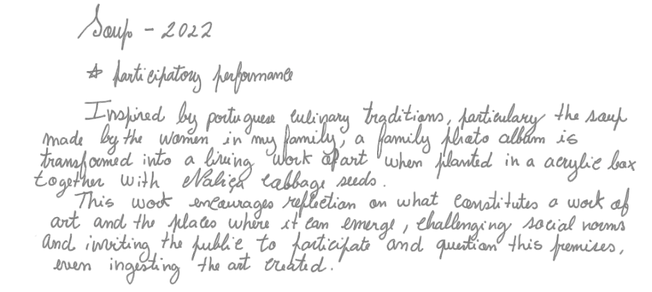 Soup - 2022
☆ participatory performance
Inspired by portuguese culinary traditions, particulary the soup
made by the women in my family, a family photo album is
transformed into a living work of art when planted in a acrylic box
together with Nabiça cabbage seeds.
This work encourages reflection on what constitutes a work of
art and the places where it can emerge, challenging social norms
and inviting the public to participate and question this premises,
even ingesting the art created.